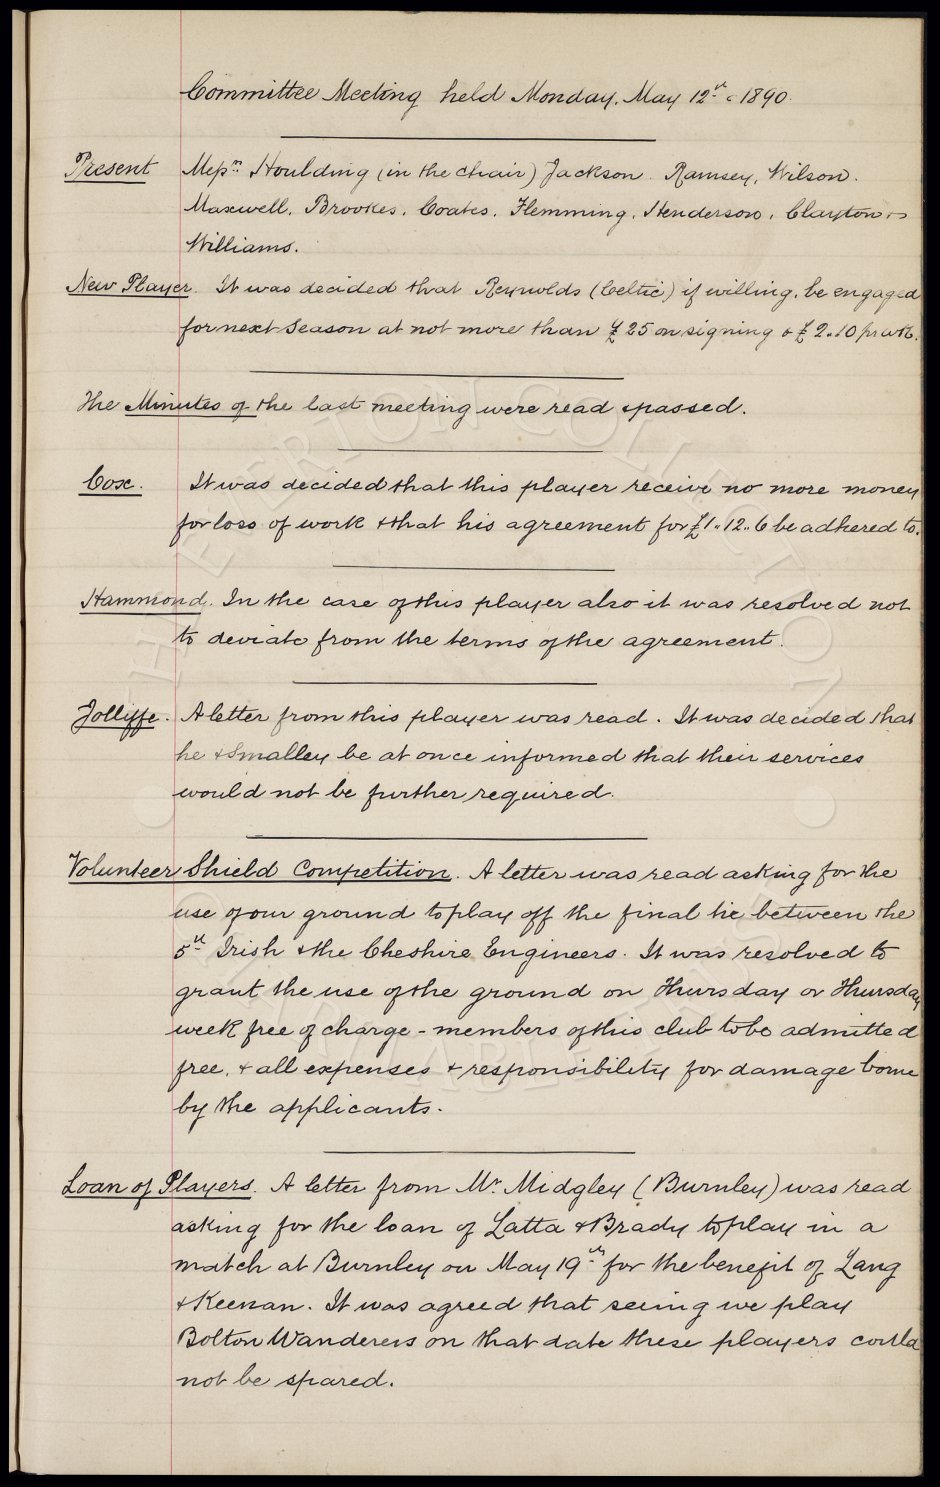 Committee Meeting held Monday, May 12th 1890.
Present Messrs Houlding (in the chair) Jackson. Ramsey, Wilson.
Maxwell, Brookes, Coates, Flemming, Henderson, Clayton &
Williams.
New Player. It was decided that Reynolds (Celtic) if willing, be engaged
for next season at not more than £25 on signing & £2.10 pr wk.
The Minutes of the last meeting were read & passed.
Cox. It was decided that this player receive no more money
for loss of work & that his agreement for £1..12..6 be adhered to.
Hammond. In the case of this player also it was resolved not
to deviate from the terms of the agreement.
Jolliffe. A letter from this player was read. It was decided that
he & Smalley be at once informed that their services
would not be further required.
Volunteer Shield Competition. A letter was read asking for the
use of our ground to play off the final tie between the
5th Irish & the Cheshire Engineers. It was resolved to
grant the use of the ground on Thursday or Thursday
week free of charge - members of this club to be admitted
free, & all expenses & responsibility for damage borne
by the applicants.
Loan of Players. A letter from Mr Midgley (Burnley) was read
asking for the loan of Latta & Brady to play in a
match at Burnley on May 19th for the benefit of Lang
& Keenan. It was agreed that seeing we play
Bolton Wanderers on that date these players could
not be spared.
THE EVERTON COLLECTION